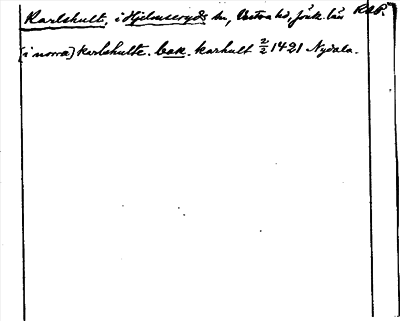 Karlshult, i Hjelmseryds sn, Vestra hd, Jönk. län RAP.
(i norra) Karlshulte. bak. karhult 2/2 1421 Nydala.